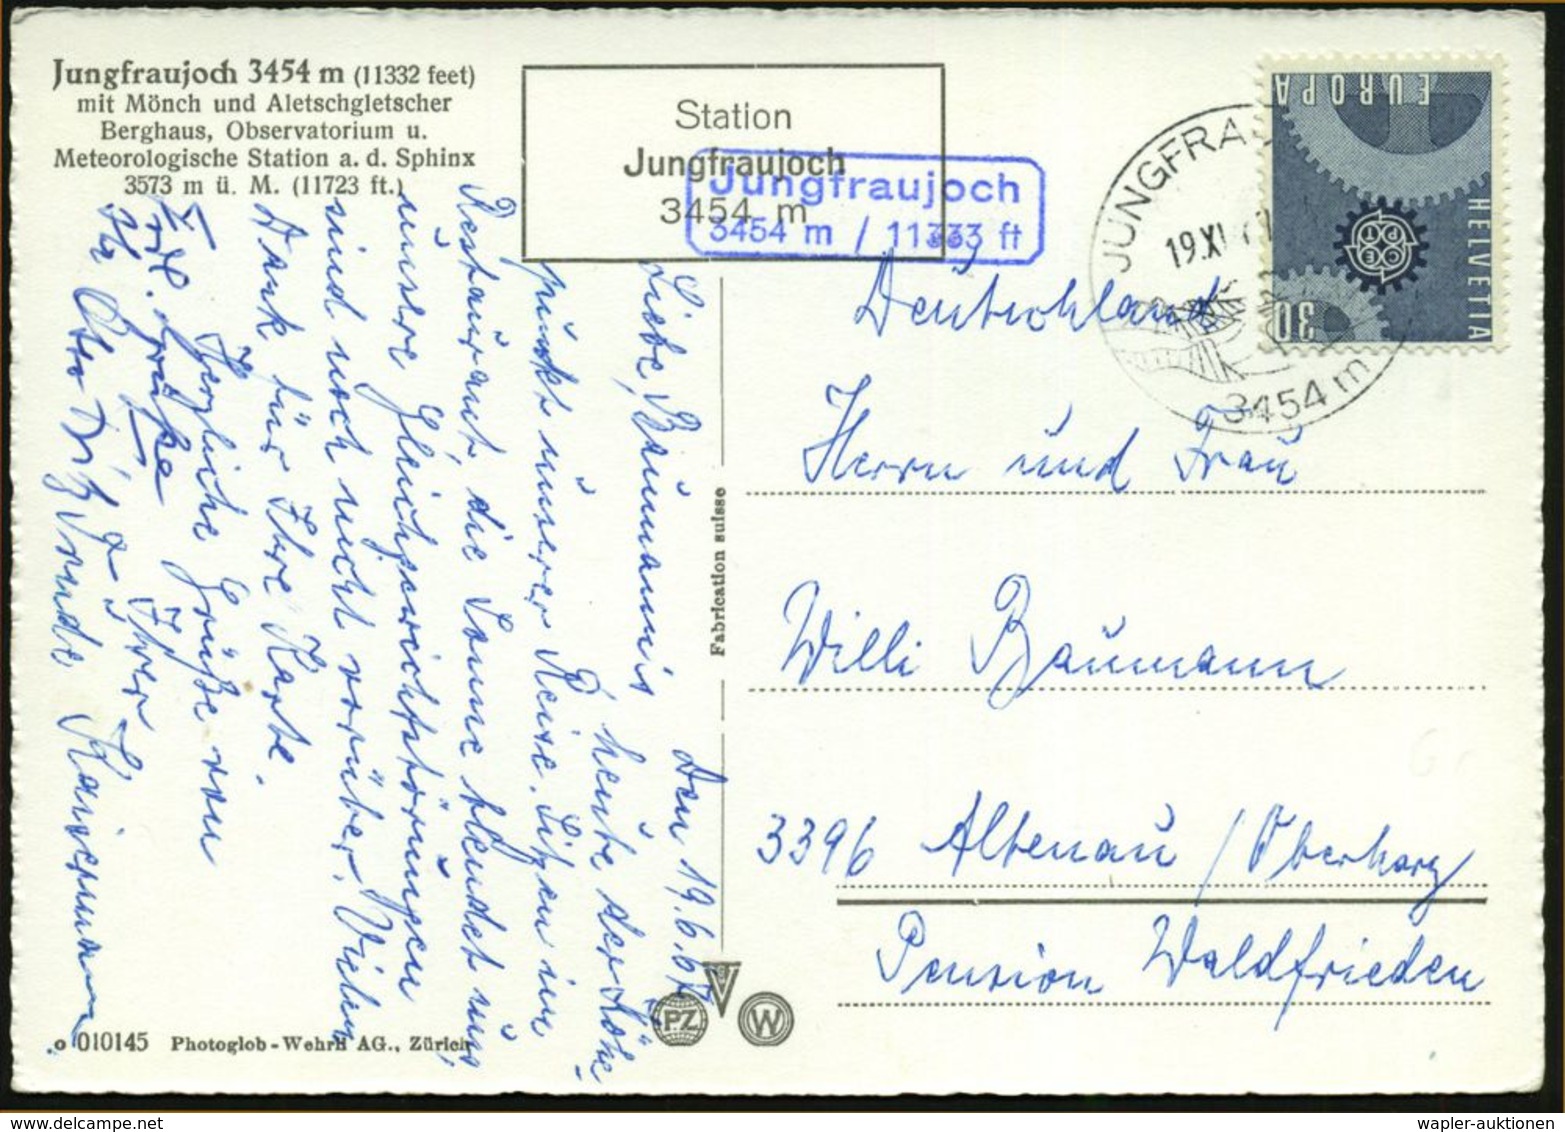 Jungfraujoch 3454 m (11332 feet)
mit Mönch und Aletschgletscher
Berghaus, Observatorium u.
Meteorologische Station a. d. Sphinx
3573 m ü. M. (11723 ft.)
Station
Jungfraujoch
3454 m
Jungfraujoch
3454 m / 11333 ft
JUNGFRAU
19.XI
3454 m
EUROPA
HELVETIA
30
CEPT
Deutschland
Herrn und Frau
Willi Baumann
3396 Altenau / Oberharz
Pension Waldfrieden
Den 19.6.67
Liebe Baumanns
heute der Höhe-
punkt unserer Reise. Sitzen im
Restaurant, die Sonne blendet uns,
unsere Gleichgewichtsstörungen
sind noch nicht vorüber. Vielen
Dank für Ihre Karte.
Herzliche Grüße von
Ihrer
Frdl. Grüße
Ihr
Fabrication suisse
010145 Photoglob-Wehrli AG., Zürich
PZ
W
wapler-auktionen